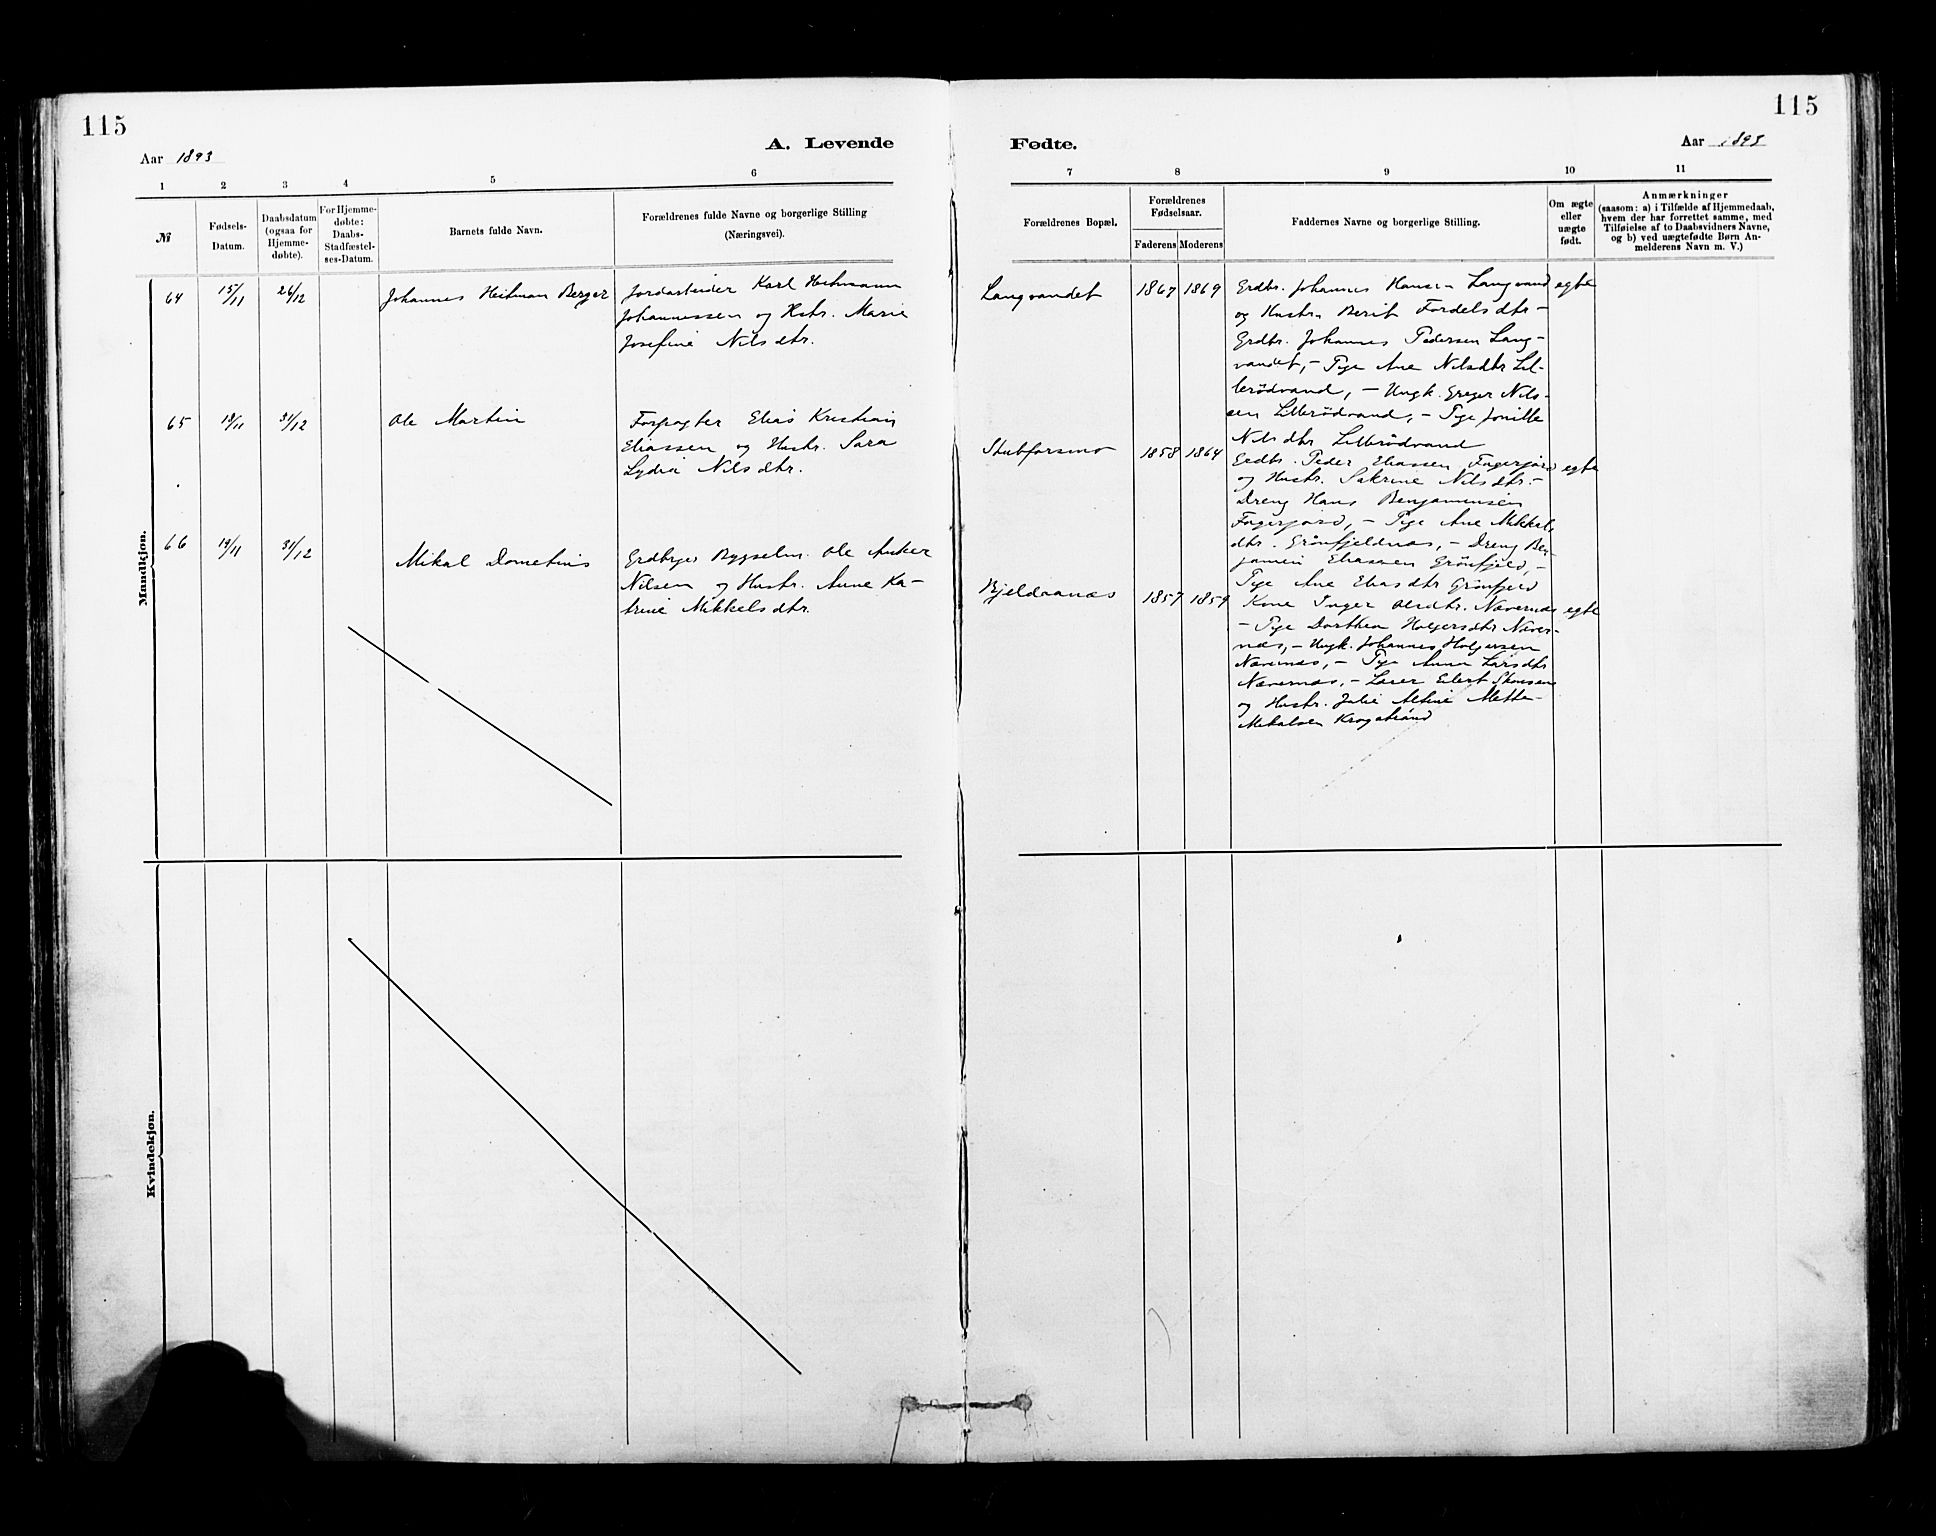 115
Aar 1893
A. Levende
1
2
3
4
5
6
№
Fødsels-
Datum.
Daabsdatum
(ogsaa for
Hjemme-
døbte).
For Hjemme-
døbte:
Daabs-
Stadfæstel-
ses-Datum.
Barnets fulde Navn.
Forældrenes fulde Navne og borgerlige Stilling
(Næringsvei).
Mandkjøn.
64
15/11
26/12
Johannes Heitman Berger
Jordarbeider Karl Heitmann
Johannessen og Hstr. Marie
Josefine Nilsdtr.
65
31/12
Ole Martin
Forpagter Elias Kristian
Eliassen og Hustr. Sara
Lydia Nilsdtr.
66
19/11
31/12
Mikal Dometius
Grdbrger Bygselm. Ole Anker
Nilsen og Hustr. Anne Ka-
trine Mikkelsdtr.
Kvindekjøn.
115
Fødte.
Aar 1893
7
8
9
10
11
Forældrenes Bopæl.
Forældrenes
Fødselsaar.
Faderens
Moderens
Faddernes Navne og borgerlige Stilling.
Om ægte
eller
uægte
født.
Anmærkninger
(saasom: a) i Tilfælde af Hjemmedaab,
hvem der har forrettet samme, med
Tilføielse af to Daabsvidners Navne,
og b) ved uægtefødte Børn An-
melderens Navn m. V.)
Langvandet
1867
1869
Grdbr. Johannes Hansen Langvand
og Hustru Berit Fordelsdtr -
Grdbr. Johannes Pedersen Lang-
vandet, - Pige Ane Nilsdtr Lil-
lerödvand, - Ungk. Greger Nils-
sen Lillerödvand, - Pige Jonille
Nilsdtr Lillerödvand
egte
Stubforsmo
1858
1864
Grdbr. Peder Eliassen Fagerjord
og Hustr. Sakrine Nilsdtr. -
Dreng Hans Benjaminsen
Fagerjord, - Pige Ane Mikkels
dtr. Grönfjeldnæs, - Dreng Ben-
jamin Eliassen Grönfjeld, -
Pige Ane Eliasdtr Grönfjeld
egte
Kjeldranæs
1857
1859
Kone Inger Olsdtr. Nævernæs
- Pige Dorthea Holgersdtr Næver-
næs, - Ungk. Johannes Holgersen
Nævernæs, - Pige Anna Larsdtr
Nævernæs, - Lærer Eilert Skousen
og Hustr. Julie Altine Mette
Mikalsen Krogstrand
egte